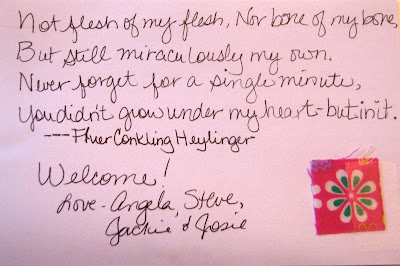 Not flesh of my flesh, Nor bone of my bone,
But still miraculously my own.
Never forget for a single minute,
You didn't grow under my heart-but in it.
---Fluer Conkling Heylinger
Welcome!
Love- Angela, Steve,
Jackie & Josie